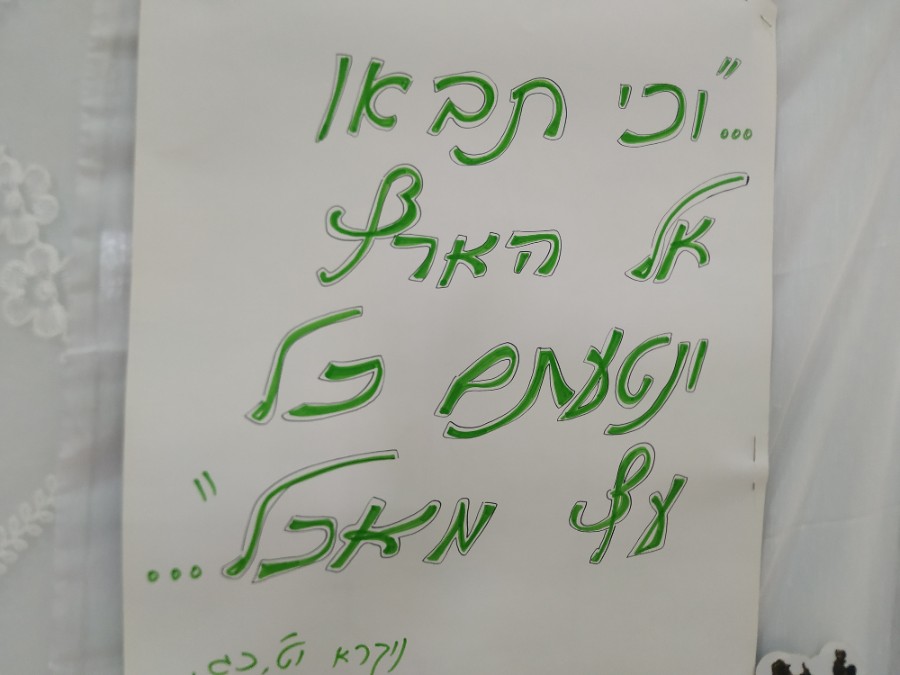 ...״וכי תבאו
אל הארץ
ונטעתם כל
עץ מאכל״...
ויקרא י״ט, כג.